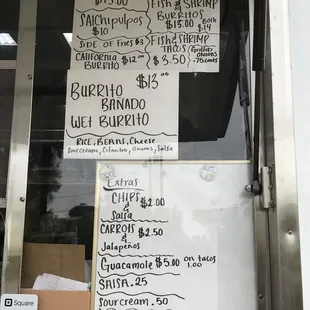 $15.00
SAlchipulpos
$10
SIDE OF Fries $3
CALIFORNIA $12.00
BURRITO
Fish & SHRIMP
BURRITOS
$15.00 Both
$14
FISH & SHRIMP
TACOS
$3.50
Grilled
ONIONS
.75 cents
$13.00
BURRITO
BAÑADO
WET BURRITO
RICE, BEANS, Cheese
Sourcream, Cilantro, Onions, Salsa
Extras
CHIPS $2.00
&
Salsa
CARROTS $2.50
&
Jalapeños
Guacamole $5.00 on tacos
1.00
SALSA .25
Sour cream .50
Square